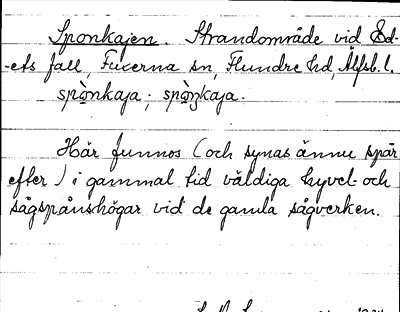 Sponkajen. Strandområde vid Ed-
-ets fall, Fuxerna sn, Flundre hd, Älfsb. l.
spo̱nkaja; spo̱ŋkaja.
Här funnos (och synas ännu spår
efter) i gammal tid väldiga hyvel- och
sågspånshögar vid de gamla sågverken.